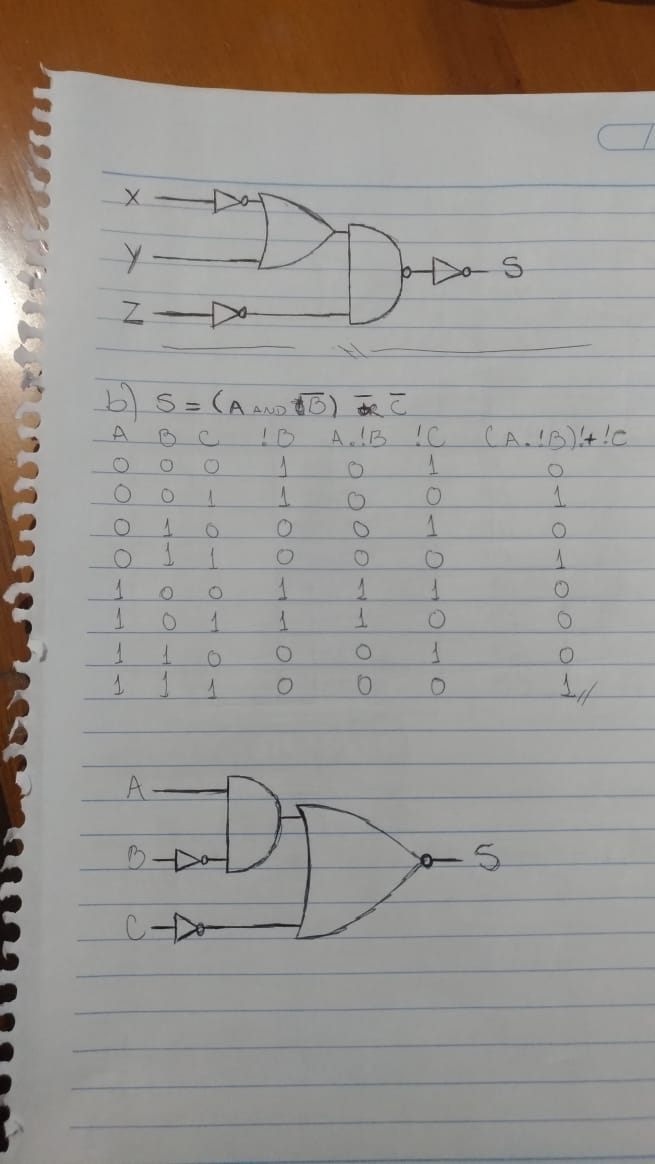 X
Y
S
Z
b) S = (A AND B̅) O̅R̅ C̅
A B C !B A.!B !C (A.!B)!+!C
0 0 0 1 0 1 0
0 0 1 1 0 0 1
0 1 0 0 0 1 0
0 1 1 0 0 0 1
1 0 0 1 1 1 0
1 0 1 1 1 0 0
1 1 0 0 0 1 0
1 1 1 0 0 0 1//
A
B
S
C